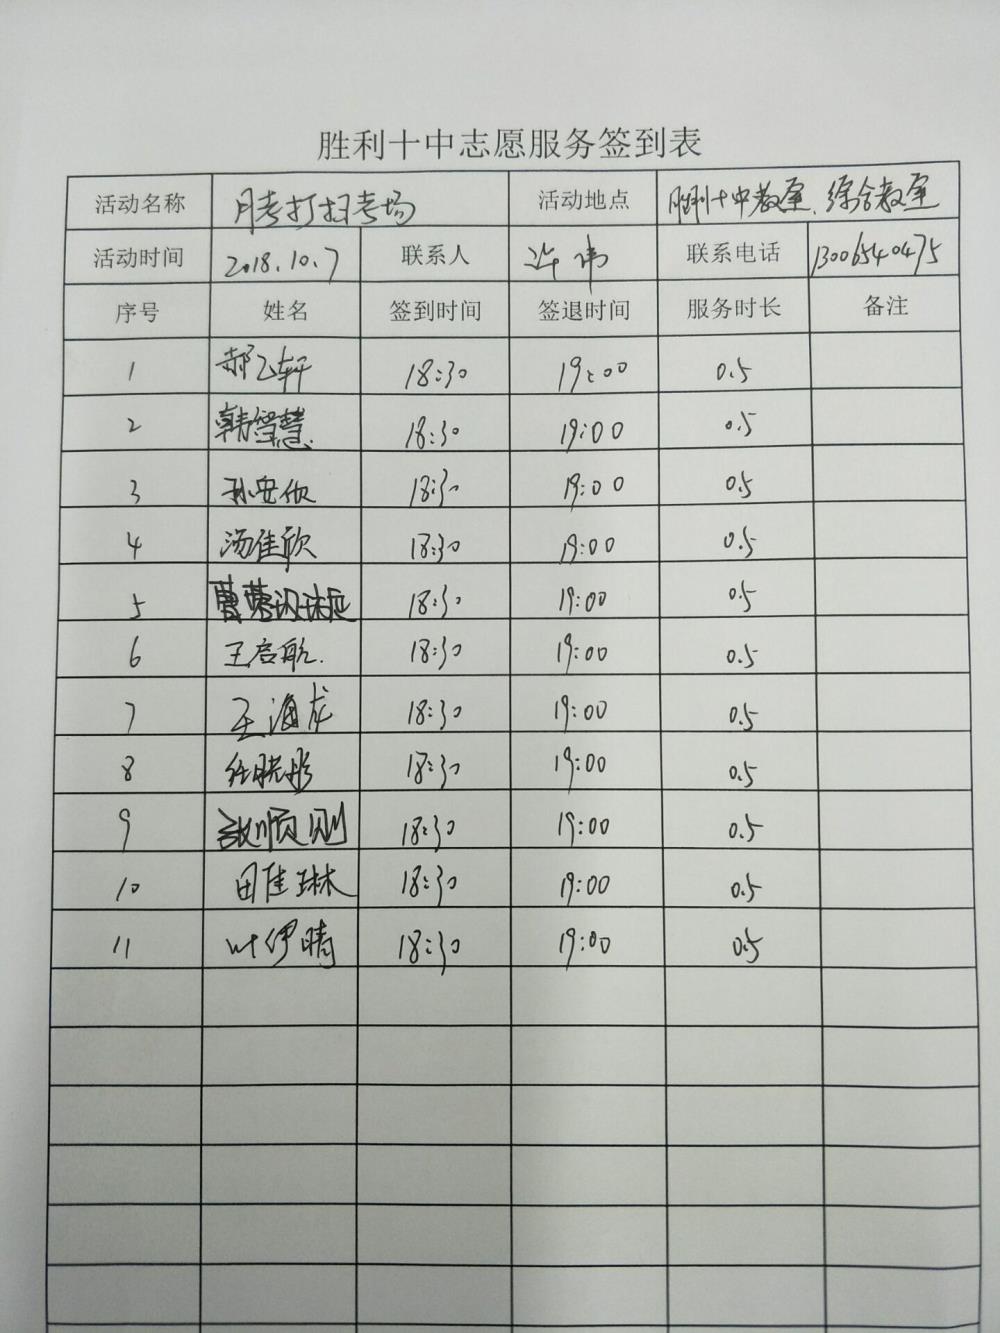 胜利十中志愿服务签到表
活动名称 月考打扫考场 活动地点 胜利十中教室、综合教室
活动时间 2018.10.7 联系人 许伟 联系电话 13006540475
序号 姓名 签到时间 签退时间 服务时长 备注
1 郝乙轩 18:30 19:00 0.5
2 韩智慧 18:30 19:00 0.5
3 孙安欣 18:30 19:00 0.5
4 汤佳欣 18:30 19:00 0.5
5 18:30 19:00 0.5
6 王启航 18:30 19:00 0.5
7 王海龙 18:30 19:00 0.5
8 任晓彤 18:30 19:00 0.5
9 顺刚 18:30 19:00 0.5
10 田佳琳 18:30 19:00 0.5
11 叶伊晴 18:30 19:00 0.5